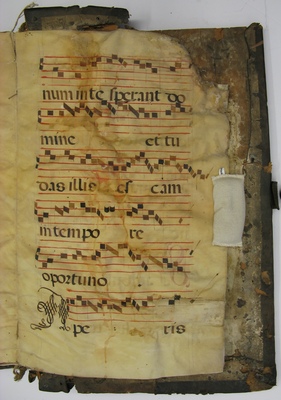 num in te sperant do
mine et tu
das illis es cam
in tempo re
oportuno
A pe ris